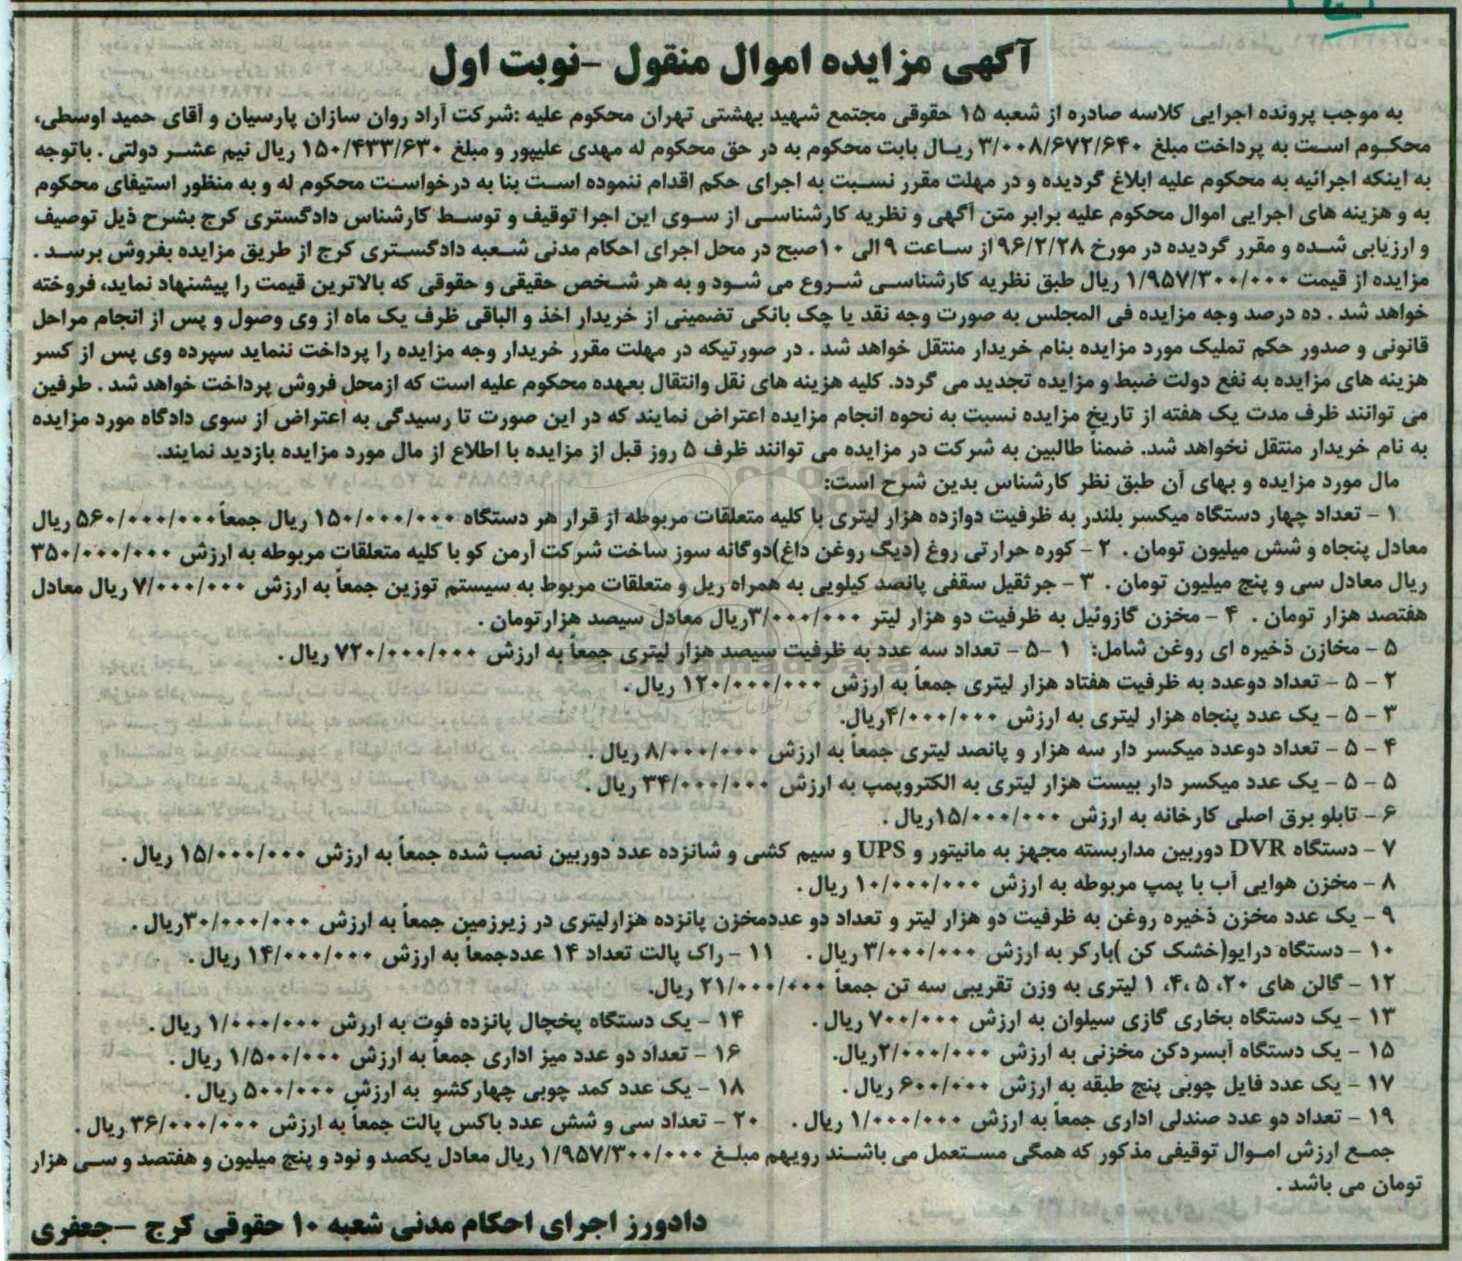 آگهی مزایده اموال منقول -نوبت اول
به موجب پرونده اجرایی کلاسه صادره از شعبه ۱۵ حقوقی مجتمع شهید بهشتی تهران محکوم علیه :شرکت آراد روان سازان پارسیان و آقای حمید اوسطی،
محکوم است به پرداخت مبلغ ۳/۰۰۸/۶۷۲/۶۴۰ ریال بابت محکوم به در حق محکوم له مهدی علیپور و مبلغ ۱۵۰/۴۳۳/۶۳۰ ریال نیم عشر دولتی . باتوجه
به اینکه اجرائیه به محکوم علیه ابلاغ گردیده و در مهلت مقرر نسبت به اجرای حکم اقدام ننموده است بنا به درخواست محکوم له و به منظور استیفای محکوم
به و هزینه های اجرایی اموال محکوم علیه برابر متن آگهی و نظریه کارشناسی از سوی این اجرا توقیف و توسط کارشناس دادگستری کرج بشرح ذیل توصیف
و ارزیابی شده و مقرر گردیده در مورخ ۹۶/۲/۲۸از ساعت ۹الی ۱۰صبح در محل اجرای احکام مدنی شعبه دادگستری کرج از طریق مزایده بفروش برسد .
مزایده از قیمت ۱/۹۵۷/۳۰۰/۰۰۰ ریال طبق نظریه کارشناسی شروع می شود و به هر شخص حقیقی و حقوقی که بالاترین قیمت را پیشنهاد نماید، فروخته
خواهد شد . ده درصد وجه مزایده فی المجلس به صورت وجه نقد یا چک بانکی تضمینی از خریدار اخذ و الباقی ظرف یک ماه از وی وصول و پس از انجام مراحل
قانونی و صدور حکم تملیک مورد مزایده بنام خریدار منتقل خواهد شد . در صورتیکه در مهلت مقرر خریدار وجه مزایده را پرداخت ننماید سپرده وی پس از کسر
هزینه های مزایده به نفع دولت ضبط و مزایده تجدید می گردد. کلیه هزینه های نقل وانتقال بعهده محکوم علیه است که ازمحل فروش پرداخت خواهد شد . طرفین
می توانند ظرف مدت یک هفته از تاریخ مزایده نسبت به نحوه انجام مزایده اعتراض نمایند که در این صورت تا رسیدگی به اعتراض از سوی دادگاه مورد مزایده
به نام خریدار منتقل نخواهد شد. ضمناً طالبین به شرکت در مزایده می توانند ظرف ۵ روز قبل از مزایده با اطلاع از مال مورد مزایده بازدید نمایند.
مال مورد مزایده و بهای آن طبق نظر کارشناس بدین شرح است:
۱ - تعداد چهار دستگاه میکسر بلندر به ظرفیت دوازده هزار لیتری با کلیه متعلقات مربوطه از قرار هر دستگاه ۱۵۰/۰۰۰/۰۰۰ ریال جمعاً۵۶۰/۰۰۰/۰۰۰ ریال
معادل پنجاه و شش میلیون تومان . ۲ - کوره حرارتی روغ (دیگ روغن داغ)دوگانه سوز ساخت شرکت آرمن کو با کلیه متعلقات مربوطه به ارزش ۳۵۰/۰۰۰/۰۰۰
ریال معادل سی و پنج میلیون تومان . ۳ - جرثقیل سقفی پانصد کیلویی به همراه ریل و متعلقات مربوط به سیستم توزین جمعاً به ارزش ۷/۰۰۰/۰۰۰ ریال معادل
هفتصد هزار تومان . ۴ - مخزن گازوئیل به ظرفیت دو هزار لیتر ۳/۰۰۰/۰۰۰ریال معادل سیصد هزارتومان .
۵ - مخازن ذخیره ای روغن شامل: ۱ -۵ - تعداد سه عدد به ظرفیت سیصد هزار لیتری جمعاً به ارزش ۷۲۰/۰۰۰/۰۰۰ ریال .
۲ - ۵ - تعداد دوعدد به ظرفیت هفتاد هزار لیتری جمعاً به ارزش ۱۲۰/۰۰۰/۰۰۰ ریال .
۳ - ۵ - یک عدد پنجاه هزار لیتری به ارزش ۴/۰۰۰/۰۰۰ریال.
۴ - ۵ - تعداد دوعدد میکسر دار سه هزار و پانصد لیتری جمعاً به ارزش ۸/۰۰۰/۰۰۰ ریال .
۵ - ۵ - یک عدد میکسر دار بیست هزار لیتری به الکتروپمپ به ارزش ۳۴/۰۰۰/۰۰۰ ریال .
۶ - تابلو برق اصلی کارخانه به ارزش ۱۵/۰۰۰/۰۰۰ریال .
۷ - دستگاه DVR دوربین مداربسته مجهز به مانیتور و UPS و سیم کشی و شانزده عدد دوربین نصب شده جمعاً به ارزش ۱۵/۰۰۰/۰۰۰ ریال .
۸ - مخزن هوایی آب با پمپ مربوطه به ارزش ۱۰/۰۰۰/۰۰۰ ریال .
۹ - یک عدد مخزن ذخیره روغن به ظرفیت دو هزار لیتر و تعداد دو عددمخزن پانزده هزارلیتری در زیرزمین جمعاً به ارزش ۳۰/۰۰۰/۰۰۰ریال .
۱۰ - دستگاه درایو(خشک کن )بارکر به ارزش ۳/۰۰۰/۰۰۰ ریال . ۱۱ - راک پالت تعداد ۱۴ عددجمعاً به ارزش ۱۴/۰۰۰/۰۰۰ ریال .
۱۲ - گالن های ۲۰، ۵ ،۴، ۱ لیتری به وزن تقریبی سه تن جمعاً ۲۱/۰۰۰/۰۰۰ ریال.
۱۳ - یک دستگاه بخاری گازی سیلوان به ارزش ۷۰۰/۰۰۰ ریال . ۱۴ - یک دستگاه یخچال پانزده فوت به اررش ۱/۰۰۰/۰۰۰ ریال .
۱۵ - یک دستگاه آبسردکن مخزنی به ارزش ۲/۰۰۰/۰۰۰ریال. ۱۶ - تعداد دو عدد میز اداری جمعاً به ارزش ۱/۵۰۰/۰۰۰ ریال .
۱۷ - یک عدد فایل چوبی پنج طبقه به ارزش ۶۰۰/۰۰۰ ریال . ۱۸ - یک عدد کمد چوبی چهارکشو به ارزش ۵۰۰/۰۰۰ ریال .
۱۹ - تعداد دو عدد صندلی اداری جمعاً به ارزش ۱/۰۰۰/۰۰۰ ریال . ۲۰ - تعداد سی و شش عدد باکس پالت جمعاً به ارزش ۳۶/۰۰۰/۰۰۰ ریال .
جمع ارزش اموال توقیفی مذکور که همگی مستعمل می باشند رویهم مبلغ ۱/۹۵۷/۳۰۰/۰۰۰ ریال معادل یکصد و نود و پنج میلیون و هفتصد و سی هزار
تومان می باشد .
دادورز اجرای احکام مدنی شعبه ۱۰ حقوقی کرج -جعفری
ParsNamadData